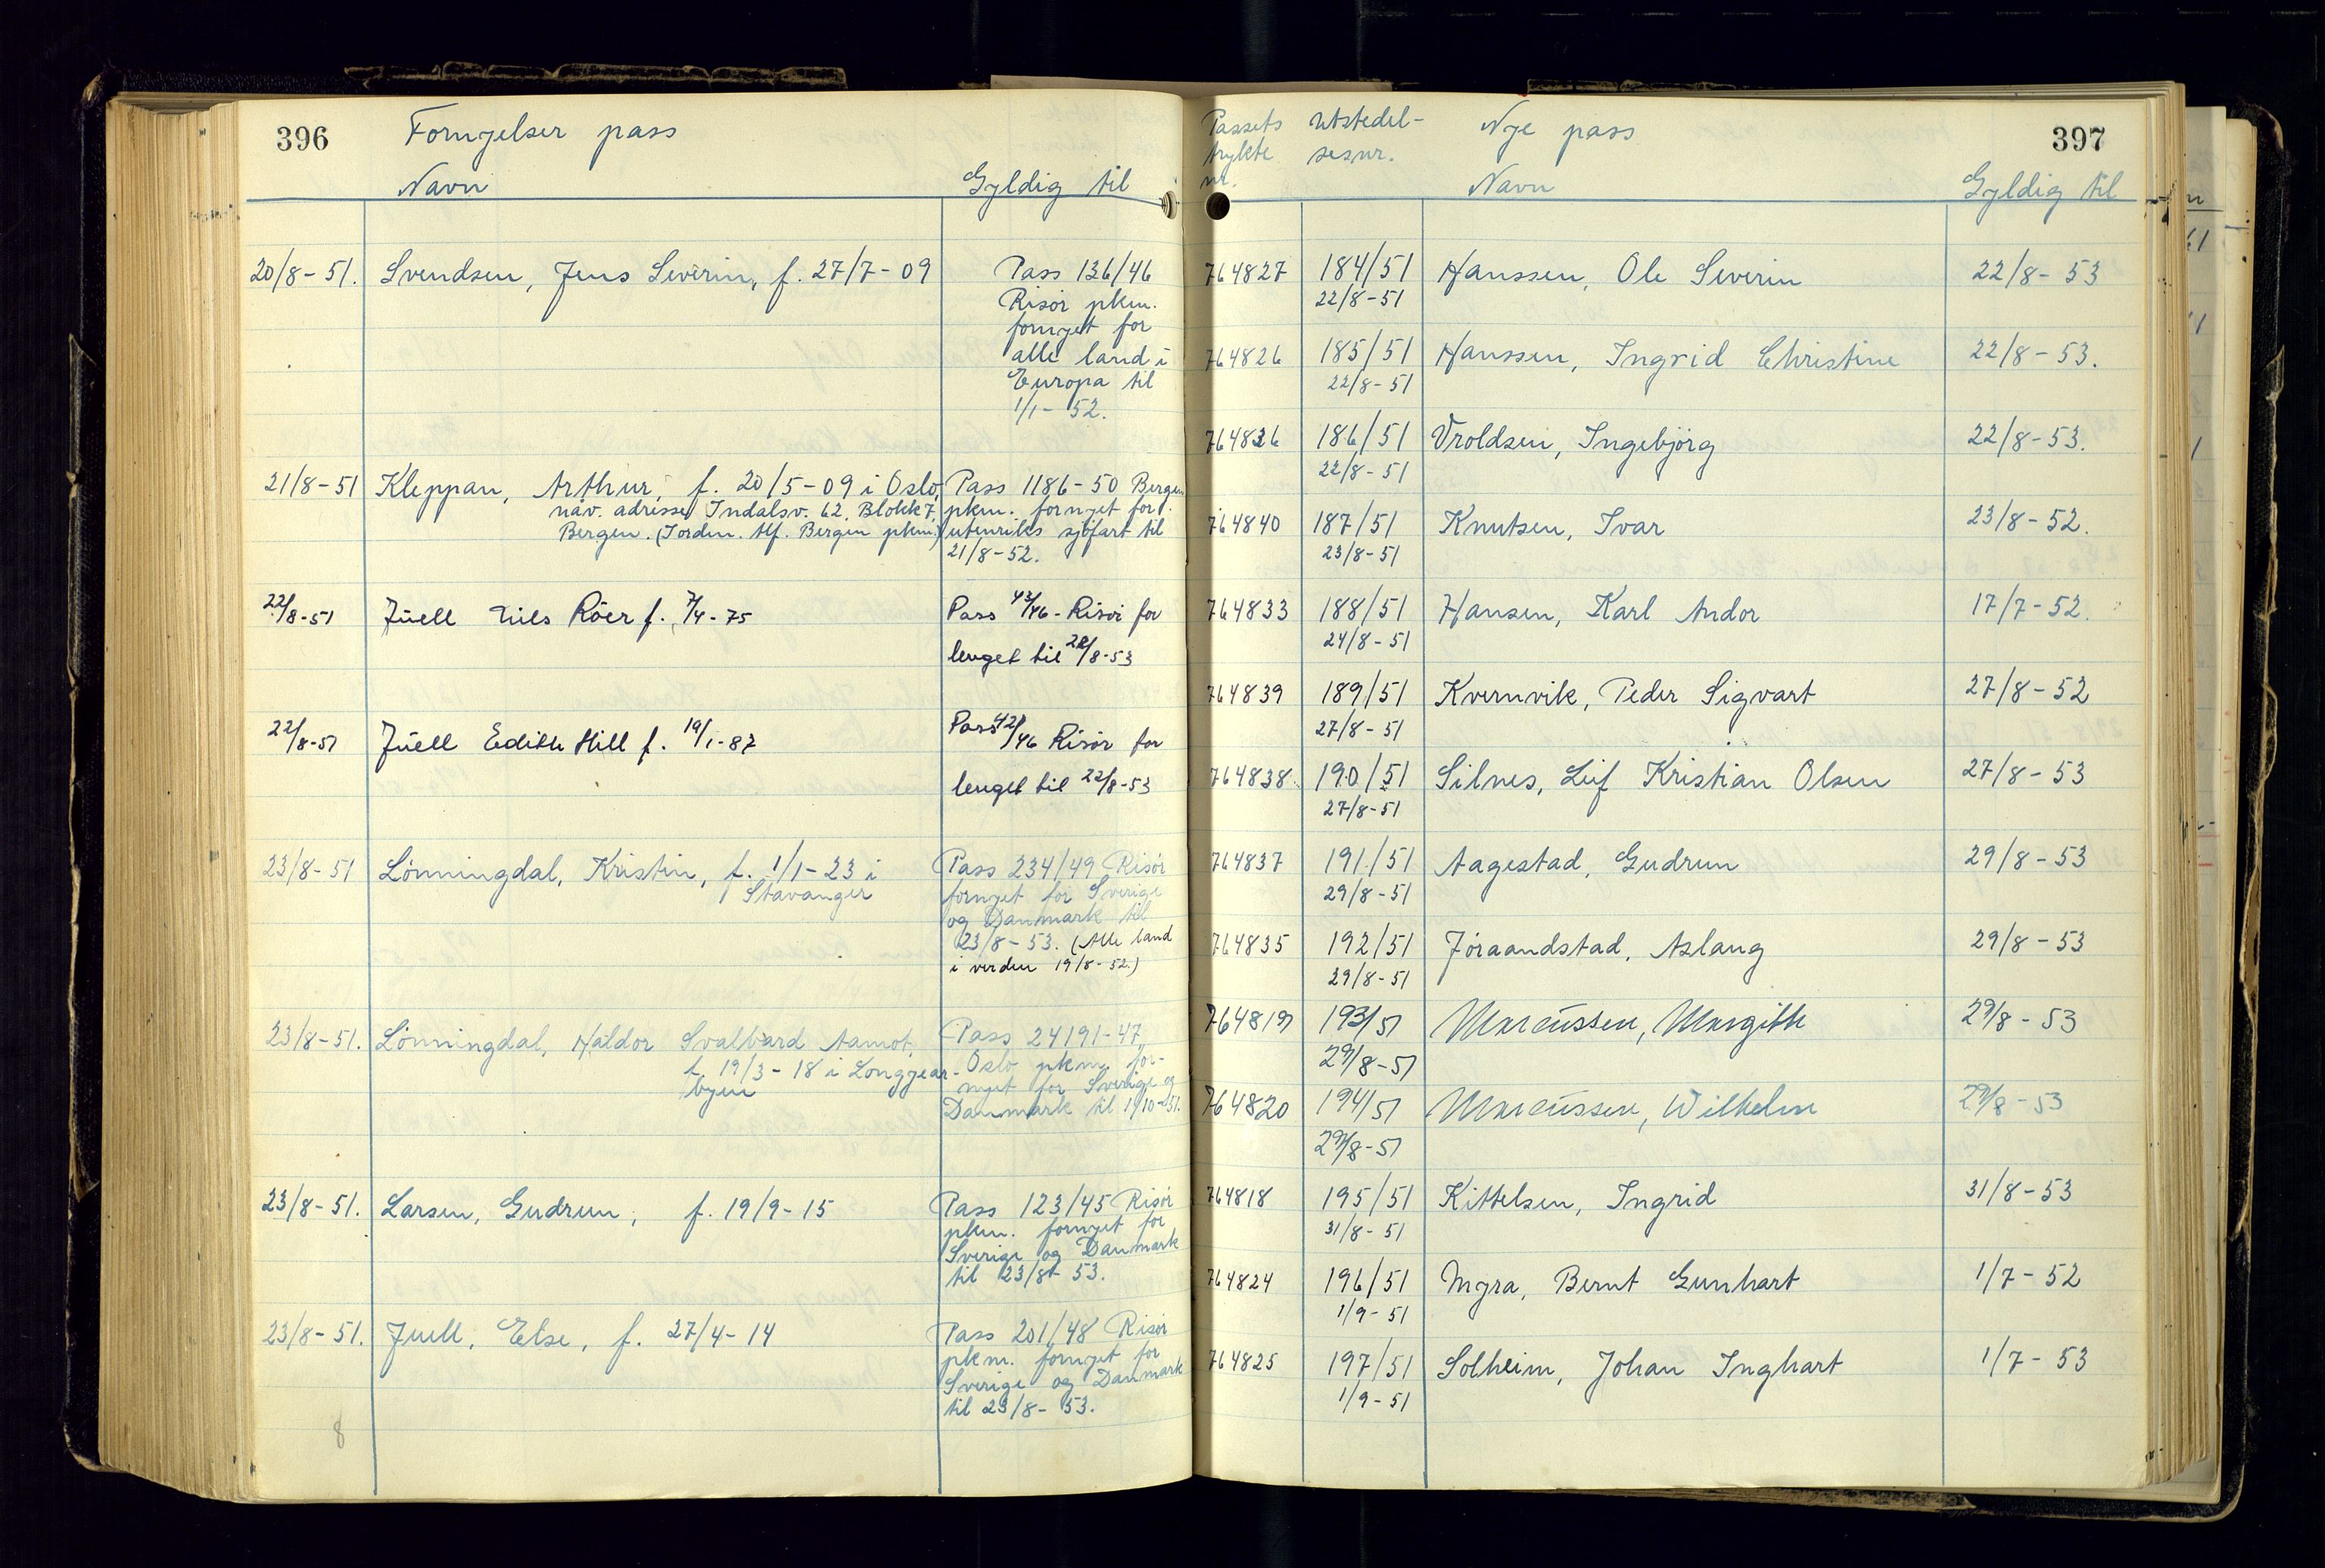 396 Fornyelser pass
Navn Gyldig til
20/8-51. Svendsen, Jens Severin, f. 27/7-09 Pass 136/46
Risör pkm.
fornyet for
alle land i
Europa til
1/1-52.
21/8-51 Kleppan, Arthur, f. 20/5-09 i Oslo, Pass 1186-50 Bergen
nåv. adresse Indalsv. 62, Blokk 7, pkm. fornyet for
Bergen. (Iordn. tlf. Bergen pkm.) utenriks sjöfart til
21/8-52.
22/8-51 Juell Nils Röer f. 7/4-75 Pass 43/46-Risör for
lenget til 22/8-53
22/8-51 Juell Edith Hill f. 19/1-87 Pass 42/46 Risör for
lenget til 22/8-53
23/8-51 Lönningdal, Kristin, f. 1/1-23 i Pass 234/49 Risör
Stavanger fornyet for Sverige
og Danmark til
23/8-53. (Alle land
i verden 19/8-52.)
23/8-51. Lönningdal, Haldor Svalbard Aamot, Pass 24191-47,
f. 19/3-18 i Longgear- Oslo pkm. for-
byen nyet for Sverige og
Danmark til 1/10-51.
23/8-51. Larsen, Gudrun, f. 19/9-15 Pass 123/45 Risör
pkm. fornyet for
Sverige og Danmark
til 23/8-53.
23/8-51. Juell, Else, f. 27/4-14 Pass 201/48 Risör
pkm. fornyet for
Sverige og Danmark
til 23/8-53.
8
Passets Utstedel- Nye pass 397
trykte sesnr.
nr. Navn Gyldig til
764827 184/51 Hanssen, Ole Severin 22/8-53
22/8-51
764826 185/51 Hanssen, Ingrid Christine 22/8-53.
22/8-51
764836 186/51 Vroldsen, Ingebjörg 22/8-53.
22/8-51
764840 187/51 Knutsen, Ivar 23/8-52.
23/8-51
764833 188/51 Hansen, Karl Andor 17/7-52.
24/8-51
764839 189/51 Kvernvik, Peder Sigvart 27/8-52
27/8-51
764838 190/51 Silnes, Leif Kristian Olsen 27/8-53
27/8-51
764837 191/51 Aagestad, Gudrun 29/8-53
29/8-51
764835 192/51 Jöraandstad, Aslaug 29/8-53
29/8-51
764819 193/51 Marcussen, Margith 29/8-53
29/8-51
764820 194/51 Marcussen, Wilhelm 29/8-53
29/8-51
764818 195/51 Kittelsen, Ingrid 31/8-53
31/8-51
764824 196/51 Myra, Bernt Gunhart 1/7-52
1/9-51
764825 197/51 Solheim, Johan Inghart 1/7-53
1/9-51